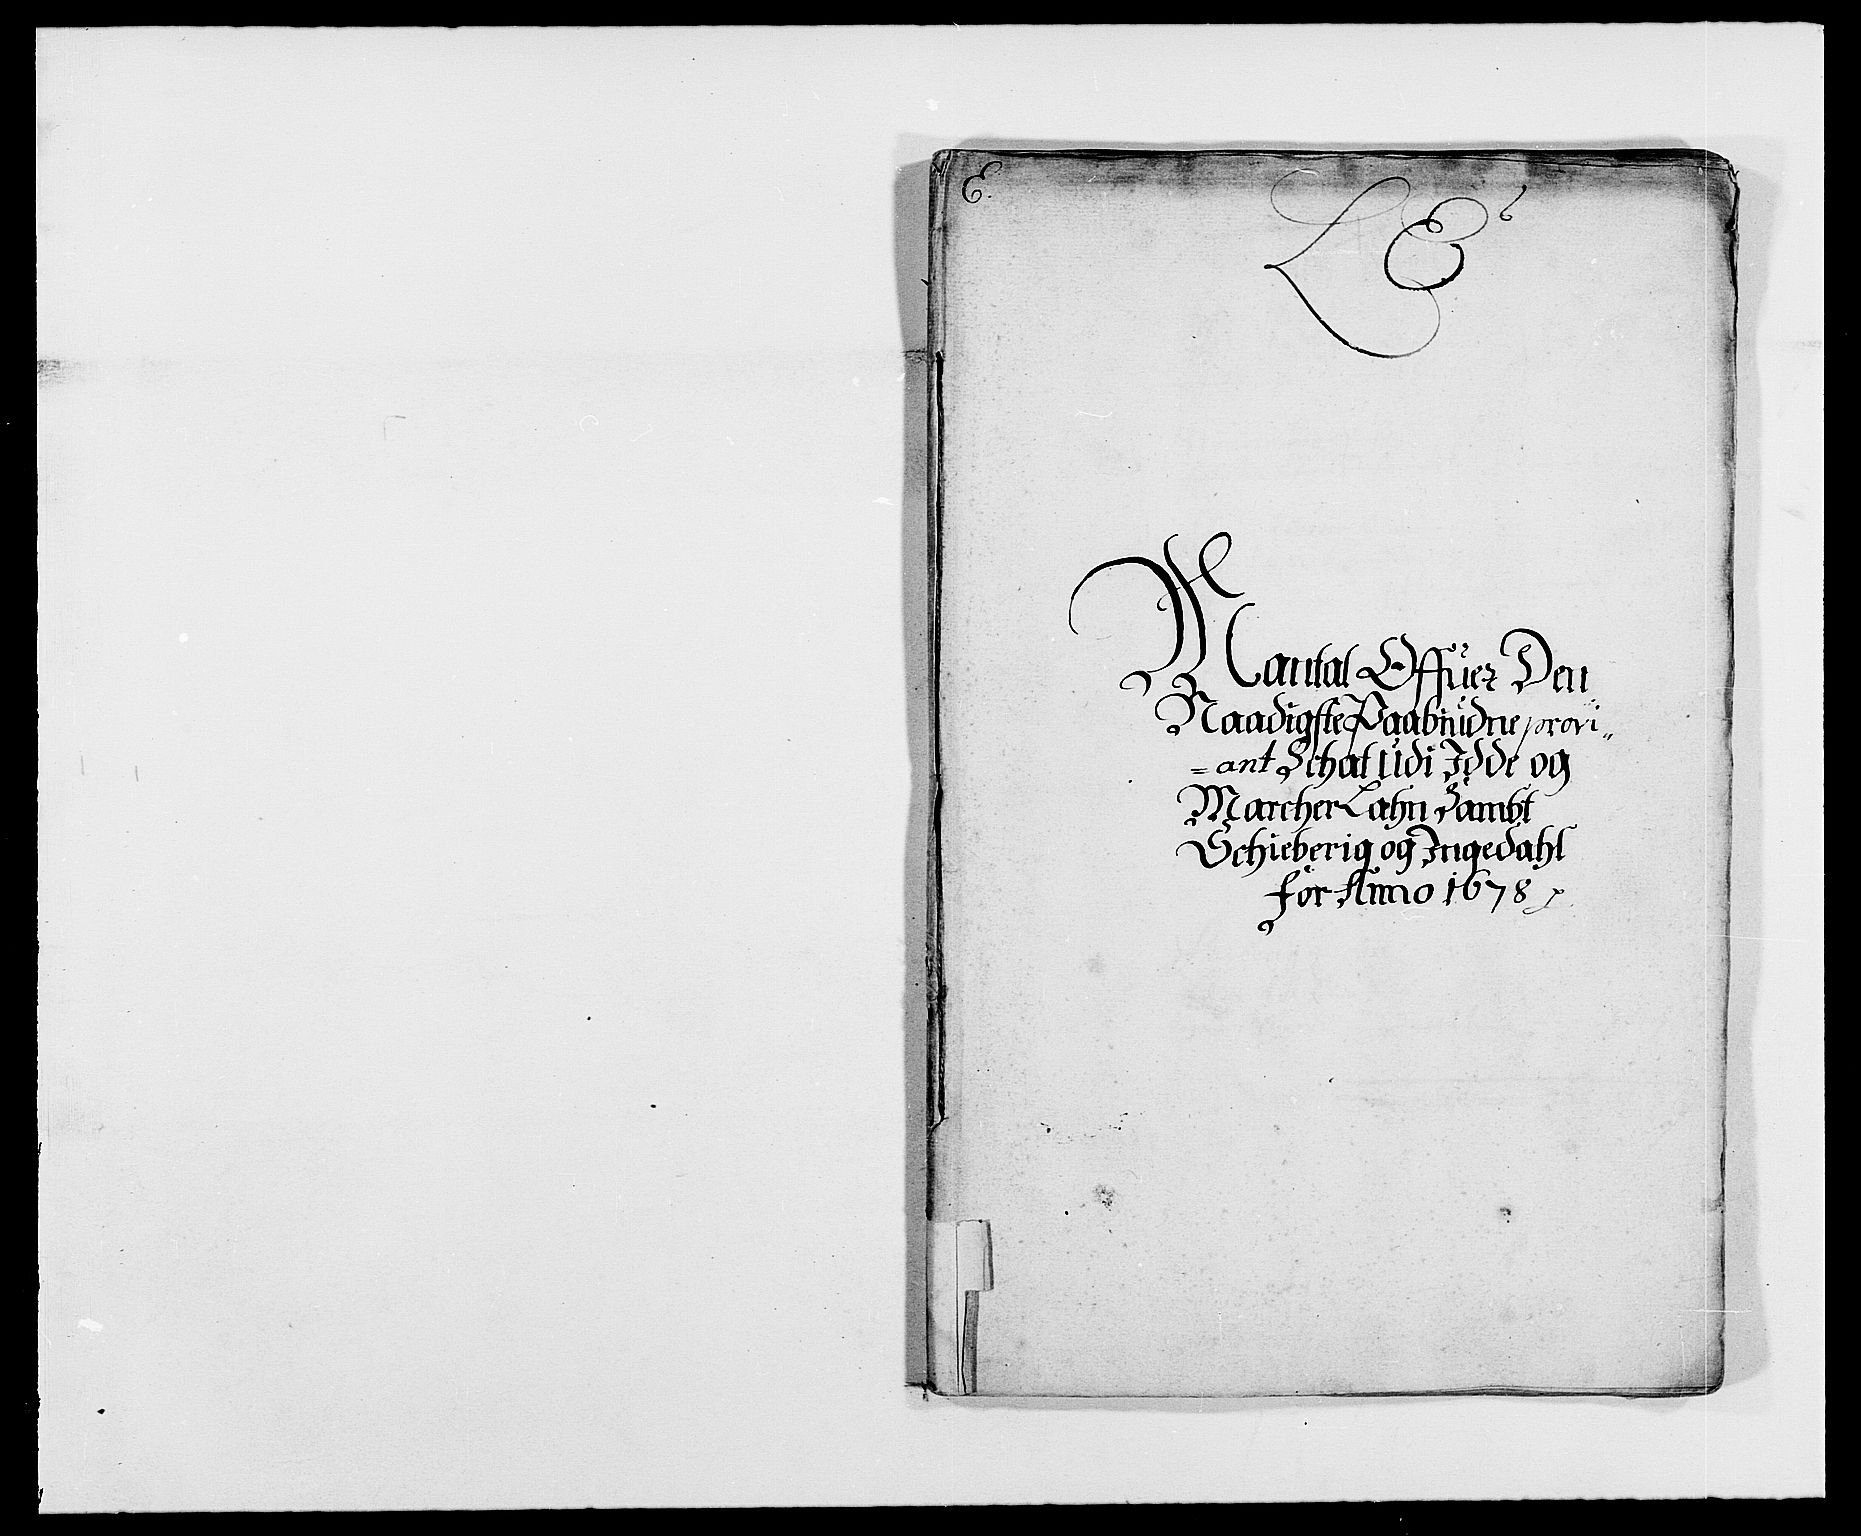 E.
L E 6
Mantal Offuer Den
Naadigste Paabudne provi„
=ant Schat udi Idde og
Marcher Lahn Sambt
Schieberig og Ingedahl
for Anno 1678